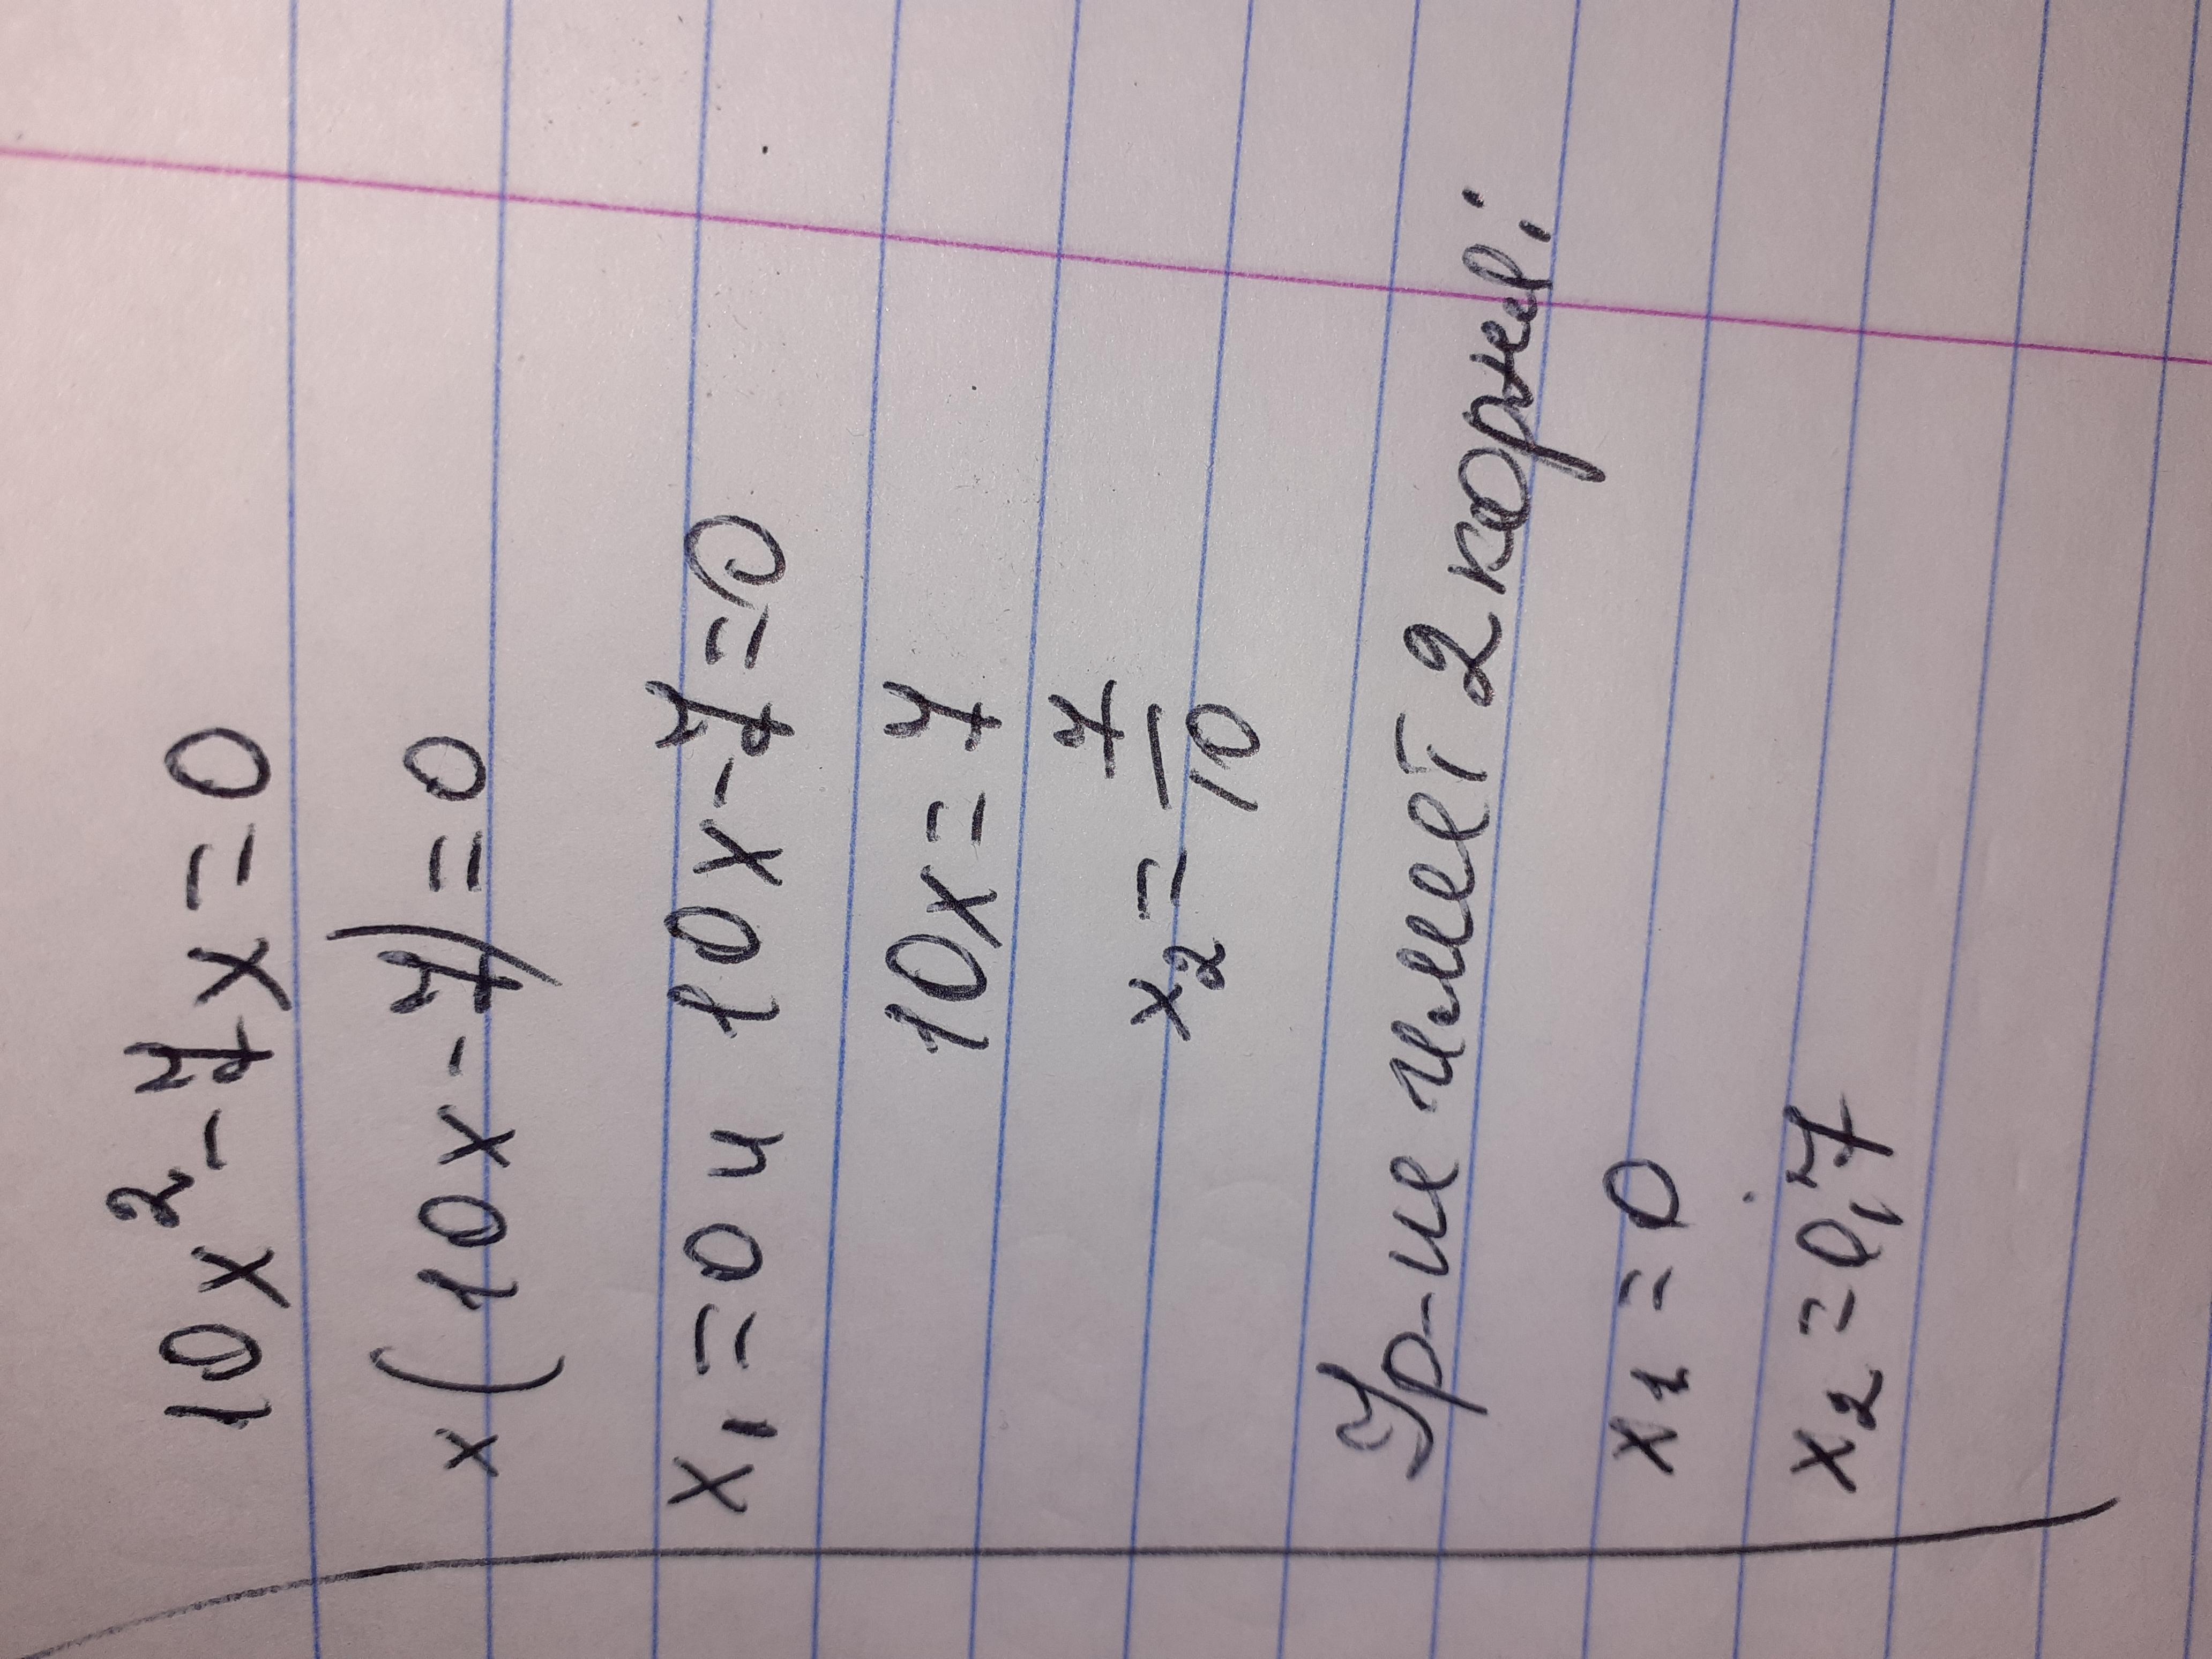 10x² - 7x = 0
x(10x - 7) = 0
x₁ = 0 и 10x - 7 = 0
10x = 7
x₂ = 7/10
Ур-ие имеет 2 корня:
x₁ = 0
x₂ = 0,7